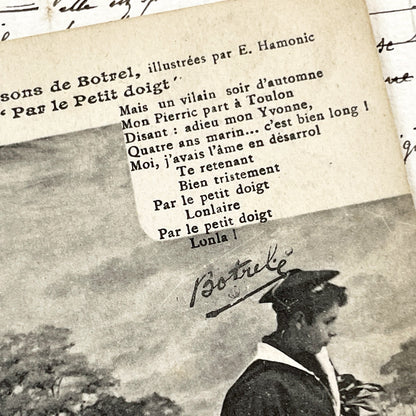 sons de Botrel, illustrées par E. Hamonic
"Par le Petit doigt"
Mais un vilain soir d'automne
Mon Pierric part à Toulon
Disant : adieu mon Yvonne,
Quatre ans marin... c'est bien long !
Moi, j'avais l'âme en désarrol
Te retenant
Bien tristement
Par le petit doigt
Lonlaire
Par le petit doigt
Lonla !
Botrel